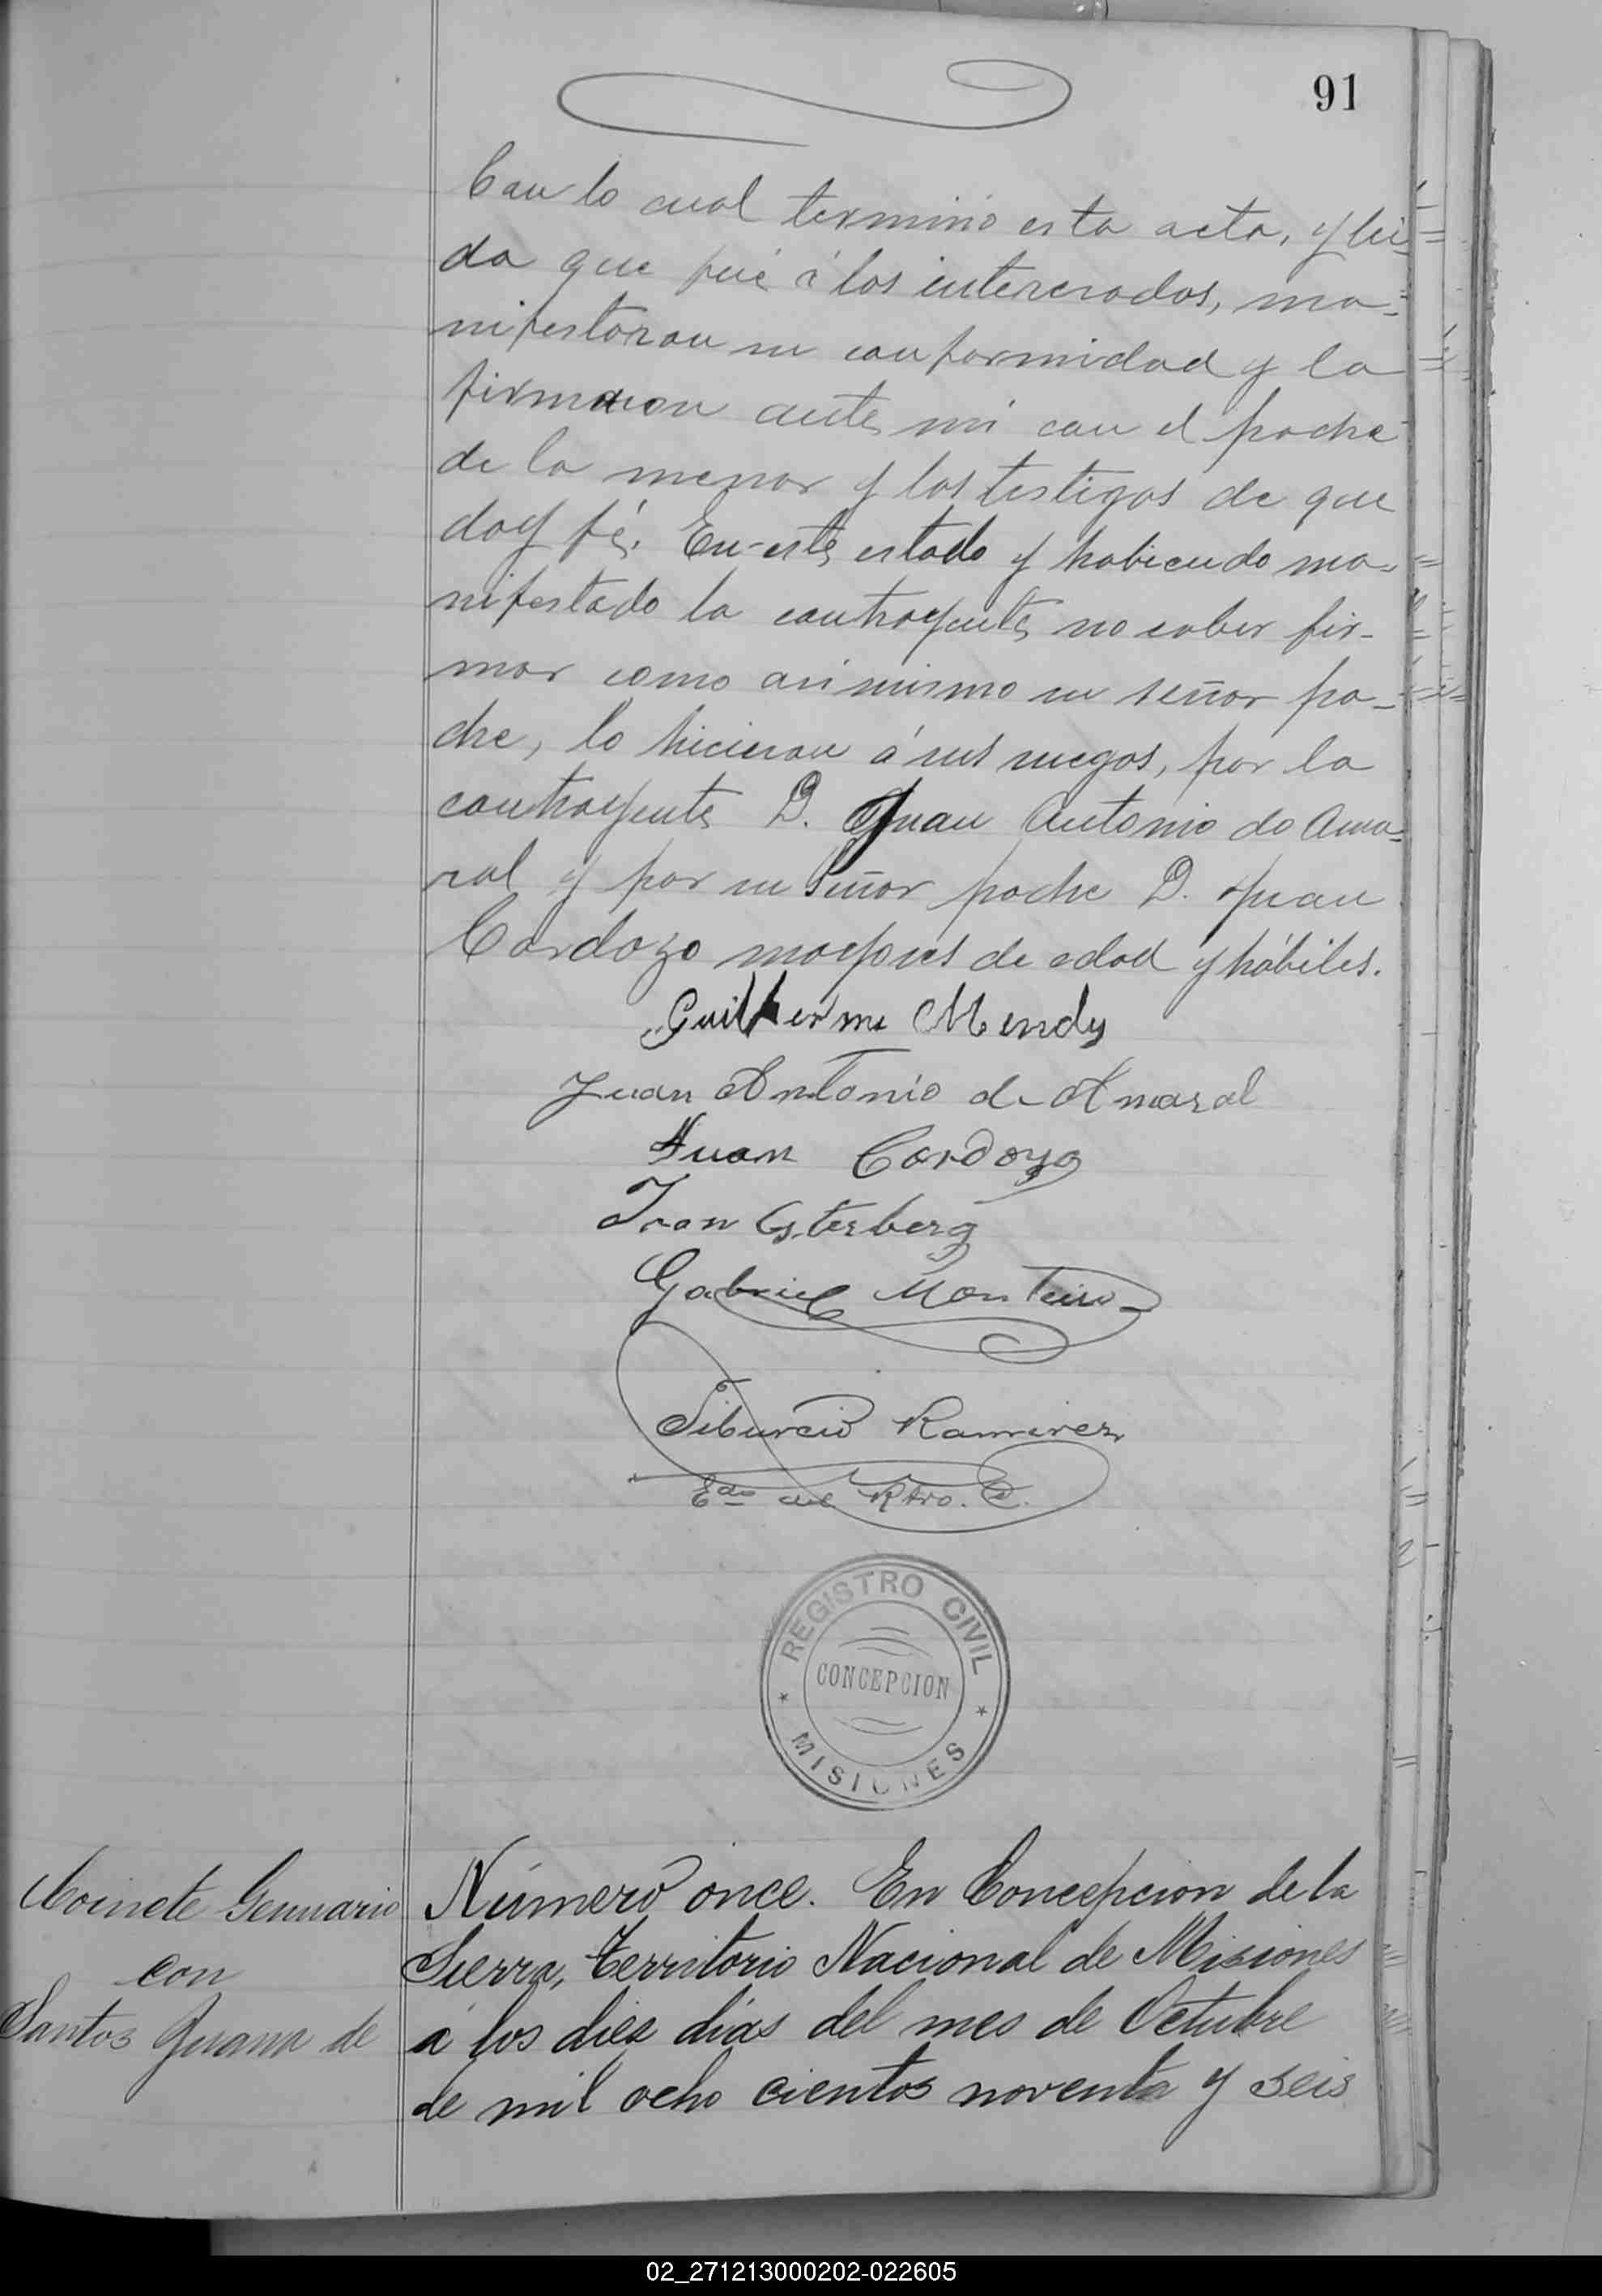 91
Con lo cual terminó esta acta, y lei-
da que fué á los interesados, ma-
nifestaron su conformidad y la
firmaron ante mi con el padre
de la menor y los testigos de que
doy fé. En este estado y habiendo ma-
nifestado la contrayente no saber fir-
mar como asi mismo su señor pa-
dre, lo hicieron á sus ruegos, por la
contrayente D. Juan Antonio do Ama-
ral y por su Señor padre D. Juan
Cardozo mayores de edad y hábiles.
Guilherme Mendes
Juan Antonio de Amaral
Juan Cardozo
Gabriel Monteiro
Tiburcio Ramirez
REGISTRO CIVIL
CONCEPCION
MISIONES
Coinete Gennario
con
Santos Juana de
Número once. En Concepcion de la
Sierra, Territorio Nacional de Misiones
á los diez dias del mes de Octubre
de mil ocho cientos noventa y seis
02_271213000202-022605